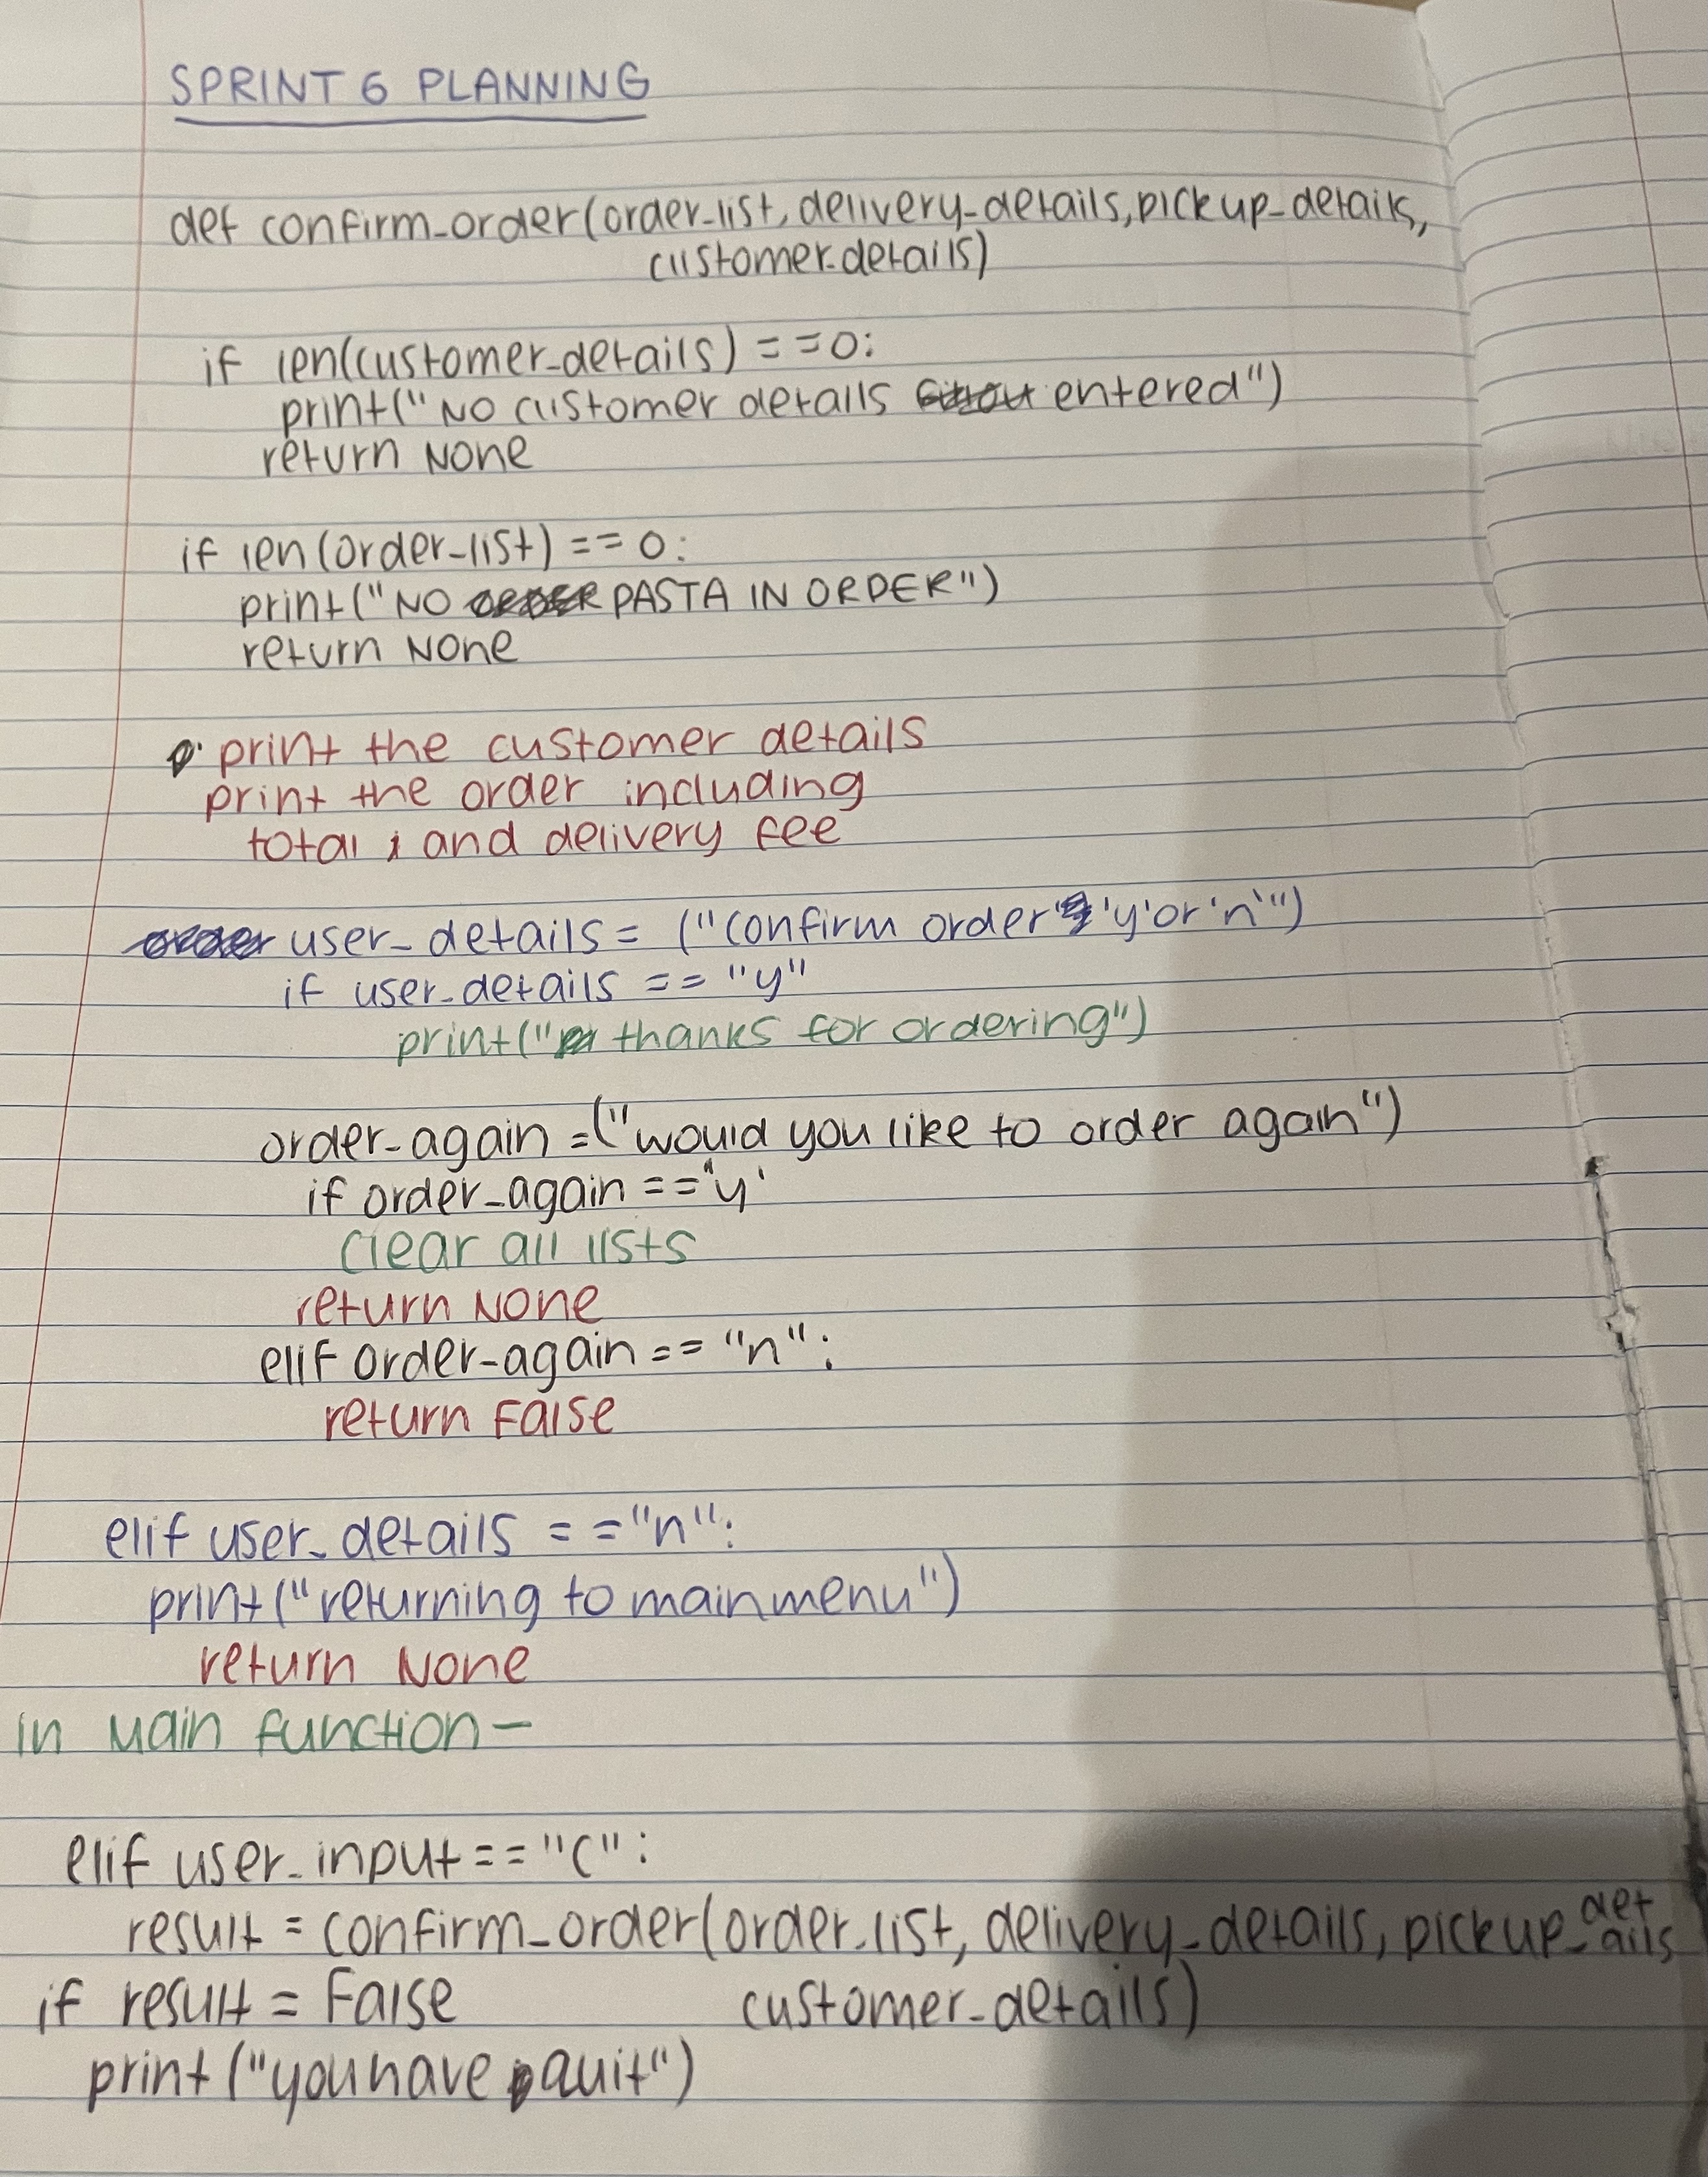 SPRINT 6 PLANNING
def confirm_order(order_list, delivery_details, pickup_details,
customer_details)
if len(customer_details) == 0:
print("No customer details entered")
return None
if len(order_list) == 0:
print("NO ORDER PASTA IN ORDER")
return None
print the customer details
print the order including
total and delivery fee
order user_details = ("confirm order 'y' or 'n'")
if user_details == "y"
print("thanks for ordering")
order_again = ("would you like to order again")
if order_again == 'y'
clear all lists
return None
elif order_again == "n":
return False
elif user_details == "n":
print("returning to main menu")
return None
in Main function -
elif user_input == "C":
result = confirm_order(order_list, delivery_details, pickup_details
customer_details)
if result = False
print("you have quit")